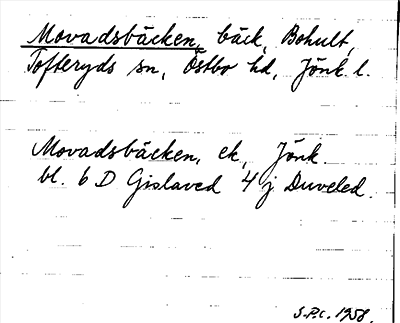 Movadsbäcken, bäck, Bohult,
Tofteryds sn, Östbo hd, Jönk. l.
Movadsbäcken, ek, Jönk.
bl. 6 D Gislaved 4 j Duveled.
S.P.C. 1958.